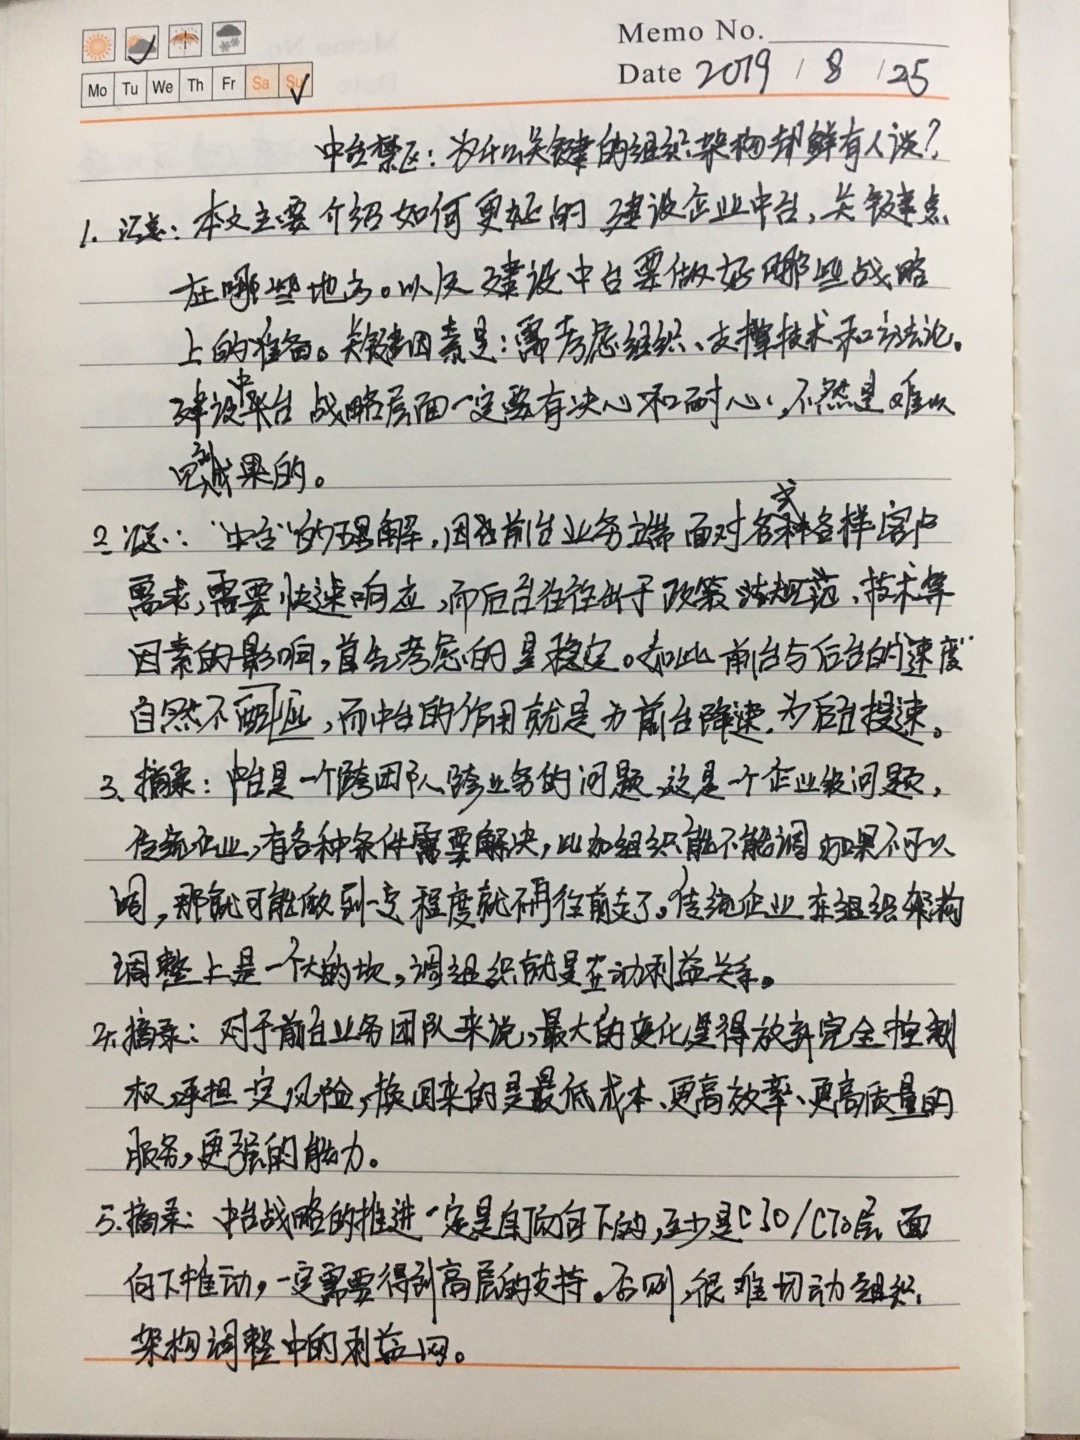 Memo No.
Mo Tu We Th Fr Sa Su
Date 2019 / 8 / 25
中台禁区：为什么关键的组织架构却鲜有人谈？
1. 汇总：本文主要介绍如何更好的建设企业中台，关键点
在哪些地方。以及建设中台要做好哪些战略
上的准备。关键因素是：需考虑组织、支撑技术和方法论。
建设中台战略层面一定要有决心和耐心，不然是难以
见到成果的。
2 汇总：“中台”的理解，因为前台业务端面对各式各样客户
需求，需要快速响应，而后台往往出于政策法规规范、技术等
因素的影响，首先考虑的是稳定。如此前台与后台的“速度”
自然不匹配，而中台的作用就是为前台降速，为后台提速。
3、摘录：中台是一个跨团队、跨业务的问题，这是一个企业级问题，
传统企业，有各种条件需要解决，比如组织能不能调，如果不可以
调，那就可能做到一定程度就不再往前走了。传统企业在组织架构
调整上是一个大的坎，调组织就是在动利益关系。
4. 摘录：对于前台业务团队来说，最大的变化是得放弃完全控制
权，承担一定风险，换回来的是最低成本、更高效率、更高质量的
服务，更强的能力。
5. 摘录：中台战略的推进一定是自顶向下的，至少是CIO/CTO层面
向下推动，一定需要得到高层的支持。否则，很难切动组织
架构调整中的利益网。